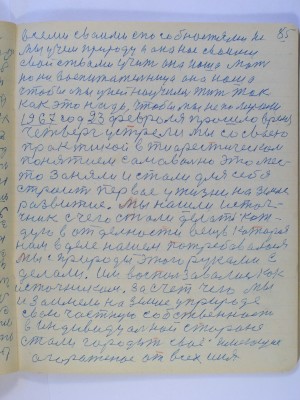 всеми своими способностями не 85
мы учим природу а она нас своими
свойствами учит она наша мать
родная воспитательница она нам
чтобы мы у ней научились жить так
как это надо, чтобы мы не
1967 год 23 февраля прошло время
четверг устрели мы со своею
практикой в теорестическом
понятием самовольно это мес-
то заняли и стали для себя
строить первое у жизни на земле
развитие. Мы нашли источ-
ник с чего стали делать каж-
дую в отдельности вещь которая
нам в деле нашем потребовалась
мы с природы этого руками с
делали. Им воспользовались как
источником. За счет чего мы
и заимели на земле у природе
свою частную собственность
в индивидуальной стороне
стали городить своё имеющее
огороженное от всех них